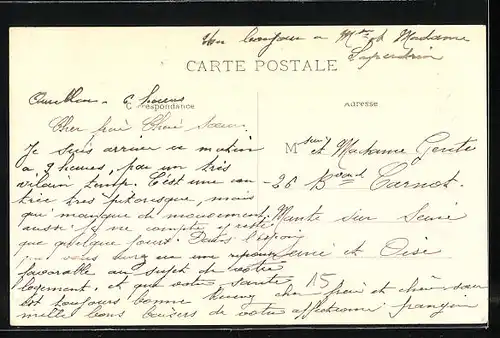 Un bonjour a Mr et Madame
CARTE POSTALE
6 heures
Correspondance
Adresse
Cher frère Chère Sœur
Je suis arrivé ce matin
a 9 heures, par un très
vilain temp. C'est une
très pitoresque, mais
qui manque de mouvement
aussi je ne compte y rester
que quelque jours. Dans l'espoir
que vous une reponse
favorable au sujet de votre
logement. et que votre santé
est toujours bonne cher frère et chère sœur
mille bons baisers de votre affectionné
Monsieur et Madame
26 Bvard Carnot.
Mante sur Seine
Seine et Oise
15